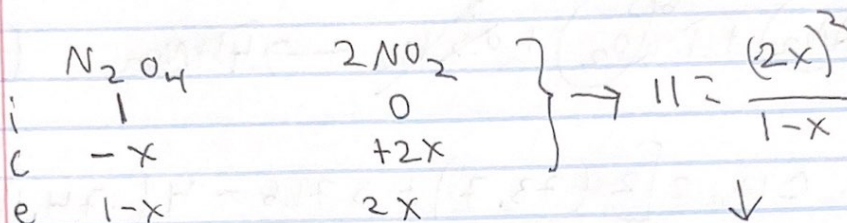 N₂O₄ 2NO₂
i 1 0
c -x +2x
e 1-x 2x
} → 11 = (2x)² / 1-x
↓